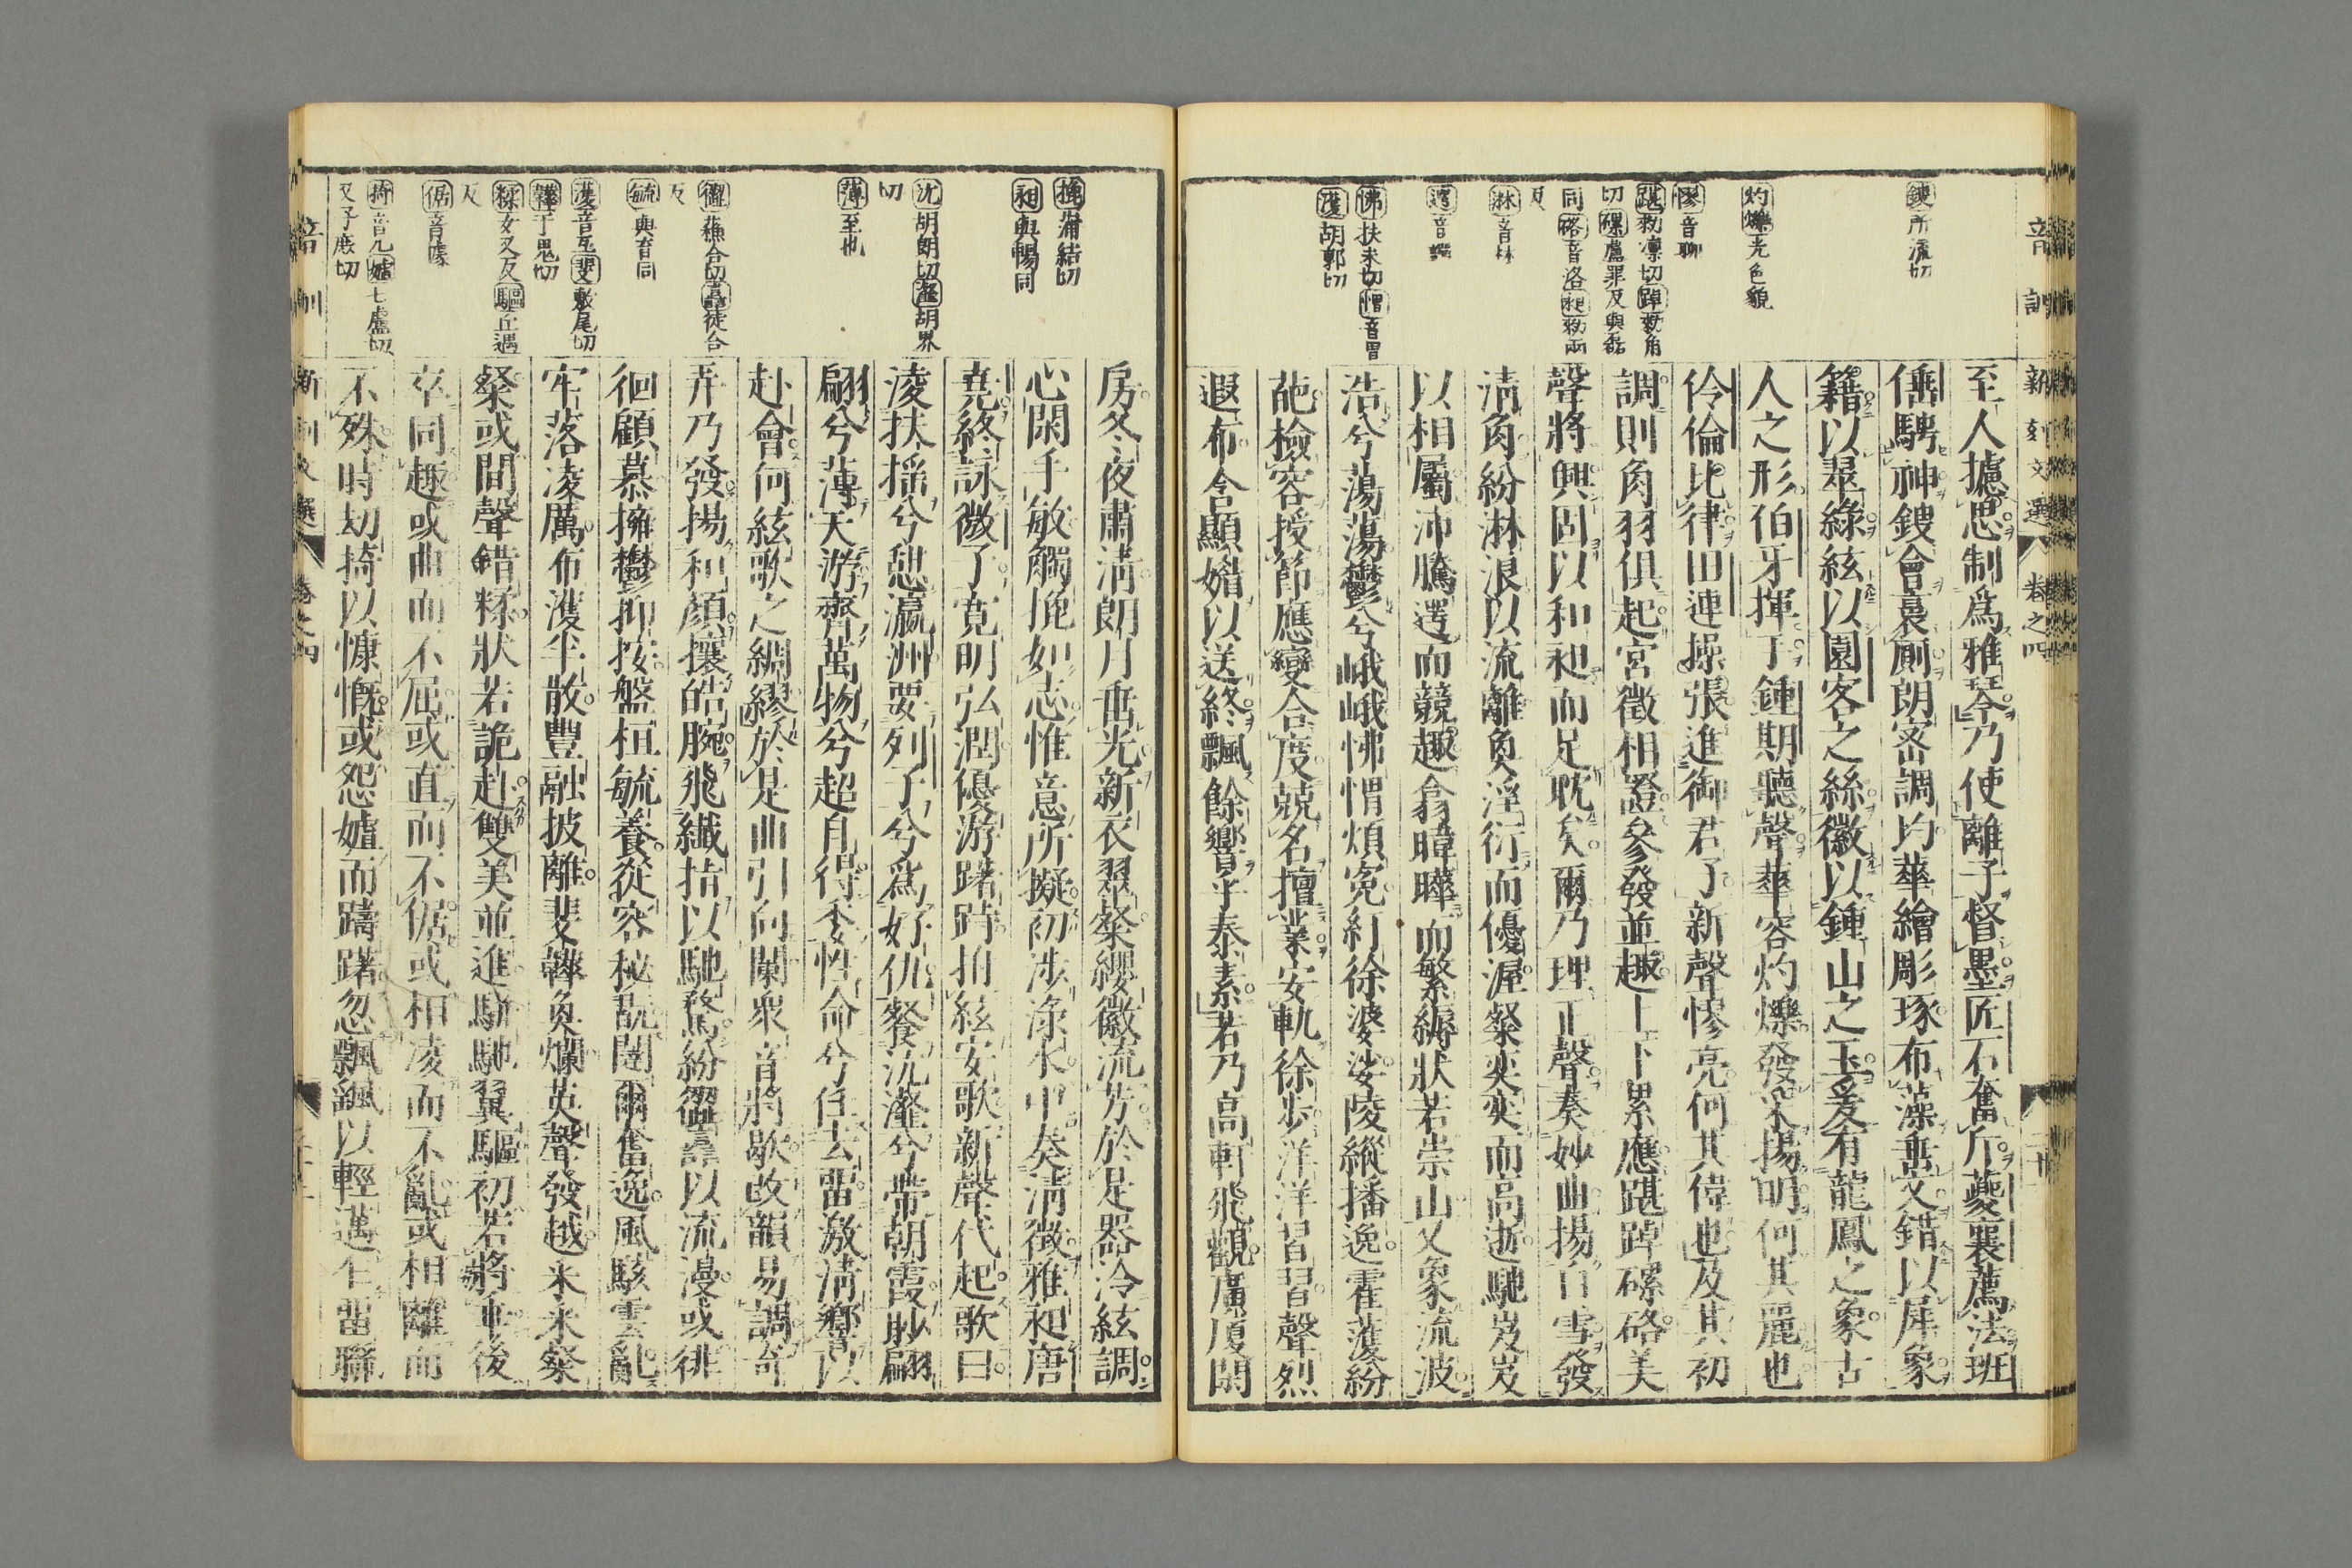 音訓
鎪所流切
灼爍光色貌
慘音聊
踸勑凜切踔勑角
切磥盧罪反與磊
同硌音洛昶勑兩
反
淋音林
遻音諤
怫扶未切㥜音胃
濩胡郭切
新刻文選
卷之四
至人攄思制爲雅琴乃使離子督墨匠石奮斤夔襄薦法班
倕騁神鎪會裛厠朗密調均華繪彫琢布藻垂文錯以犀象
籍以翠綠絃以園客之絲徽以鍾山之玉爰有龍鳳之象古
人之形伯牙揮手鍾期聽聲華容灼爍發采揚明何其麗也
伶倫比律田連操張進御君子新聲憀亮何其偉也及其初
調則角羽俱起宮徵相證參發並趣上下累應踸踔磥硌美
聲將興固以和昶而足耽矣爾乃理正聲奏妙曲揚白雪發
淸角紛淋浪以流離奐淫衍而優渥粲奕奕而高逝馳岌岌
以相屬沛騰遻而競趣翕韡曄而繁縟狀若崇山又象流波
浩兮湯湯鬱兮峨峨怫㥜煩寃紆徐婆娑陵縱播逸霍濩紛
葩檢容授節應變合度兢名擅業安軌徐步洋洋習習聲烈
遐布含顯媚以送終飄餘響乎泰素若乃高軒飛觀廣厦閑
㧙蒲結切
昶與暢同
沆胡朗切瀣胡界
切
薄至也
㒊蘓合切譶徒合
反
毓與育同
濩音互斐敷尾切
韡于鬼切
糅女又反驅丘遇
反
倨音據
掎音几㜘七盧切
又子庶切
房冬夜肅淸朗月垂光新衣翠粲纓徽流芳於是器冷絃調
心閑手敏觸㧙如志惟意所擬初涉淥水中奏淸徵雅昶唐
堯終詠微子寬明弘潤優游躇跱拊絃安歌新聲代起歌曰
淩扶搖兮憩瀛洲要列子兮爲好仇餐沆瀣兮帶朝霞眇翩
翩兮薄天游齊萬物兮超自得委性命兮任去留激淸響以
赴會何絃歌之綢繆於是曲引向闌衆音將歇改韻易調奇
弄乃發揚和顏攘皓腕飛纖指以馳騖紛㒊譶以流漫或徘
徊顧慕擁鬱抑按盤桓毓養從容秘翫闥爾奮逸風駭雲亂
牢落凌厲布濩半散豐融披離斐韡奐爛英聲發越采采粲
粲或間聲錯糅狀若詭赴雙美並進騈馳翼驅初若將乖後
卒同趣或曲而不屈或直而不倨或相凌而不亂或相離而
不殊時刧掎以慷慨或怨㜘而躊躇忽飄颻以輕邁乍留聯